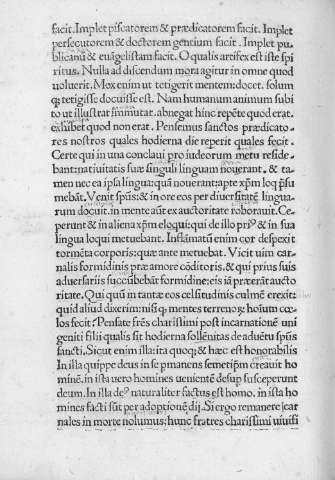 facit. Implet piscatorem & prædicatorem facit. Implet
persecutorem & doctorem gentium facit. Implet pu-
blicanū & euāgelistam facit. O qualis artifex est iste spi
ritus. Nulla ad discendum mora agitur in omne quod
uoluerit. Mox enim ut tetigerit mentem: docet. solum
q; tetigisse docuisse est. Nam humanum animum subi
to ut illustrat immutat. abnegat hinc repēte quod erat.
exhibet quod non erat. Pensemus sanctos prædicato-
res nostros quales hodierna die reperit quales fecit.
Certe qui in una conclaui pro iudeorum metu reside-
bant: natiuitatis suæ singuli linguam nouerant. & ta-
men nec ea ipsa lingua: quā nouerant: apte xp̄m loq̄ p̄su
mebāt. Venit sp̄us: & in ore eos per diuersitatē lingua-
rum docuit. in mente aūt ex auctoritate roborauit. Ce-
perunt & in aliena xp̄m eloqui: qui de illo priꝰ & in sua
lingua loqui metuebant. Inflāmatū enim cor despexit
tormēta corporis: quæ ante metuebat. Vicit uim car-
nalis formidinis præ amore cōditoris. & qui prius suis
aduersariis succūbebāt formidine: eis iā præerāt aucto
ritate. Qui quū in tantæ eos celsitudinis culmē erexit:
quid aliud dixerim: nisi q̄ mentes terrenoꝝ hoīum cœ-
los fecit? Pensate frēs charissimi post incarnationē uni
geniti filii qualis sit hodierna sollēnitas de aduētu sp̄us
sancti. Sicut enim illa: ita quoq; & hæc est honorabilis
In illa quippe deus in se pmanens semetip̄m creauit ho
minē. in ista uero homines uenientē desup susceperunt
deum. In illa deꝰ naturaliter factus est homo. in ista ho
mines facti sūt per adoptionē dij. Si ergo remanere car
nales in morte nolumus: hunc fratres charissimi uiuifi